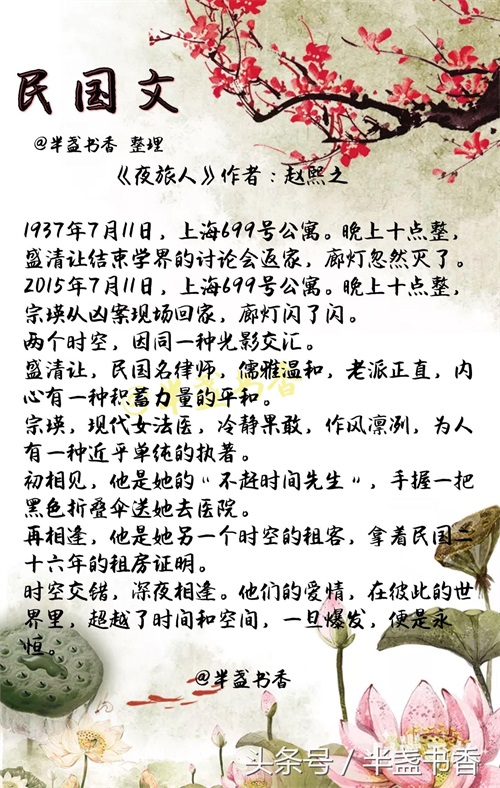 民国文
@半盏书香 整理
《夜旅人》作者:赵熙之
1937年7月11日，上海699号公寓。晚上十点整，
盛清让结束学界的讨论会返家，廊灯忽然灭了。
2015年7月11日，上海699号公寓。晚上十点整，
宗瑛从凶案现场回家，廊灯闪了闪。
两个时空，因同一种光影交汇。
盛清让，民国名律师，儒雅温和，老派正直，内
心有一种积蓄力量的平和。
@半盏书香
宗瑛，现代女法医，冷静果敢，作风凛冽，为人
有一种近乎单纯的执著。
初相见，他是她的"不赶时间先生"，手握一把
黑色折叠伞送她去医院。
再相逢，他是她另一个时空的租客，拿着民国二
十六年的租房证明。
时空交错，深夜相逢。他们的爱情，在彼此的世
界里，超越了时间和空间，一旦爆发，便是永
恒。
@半盏书香
头条号/半盏书香